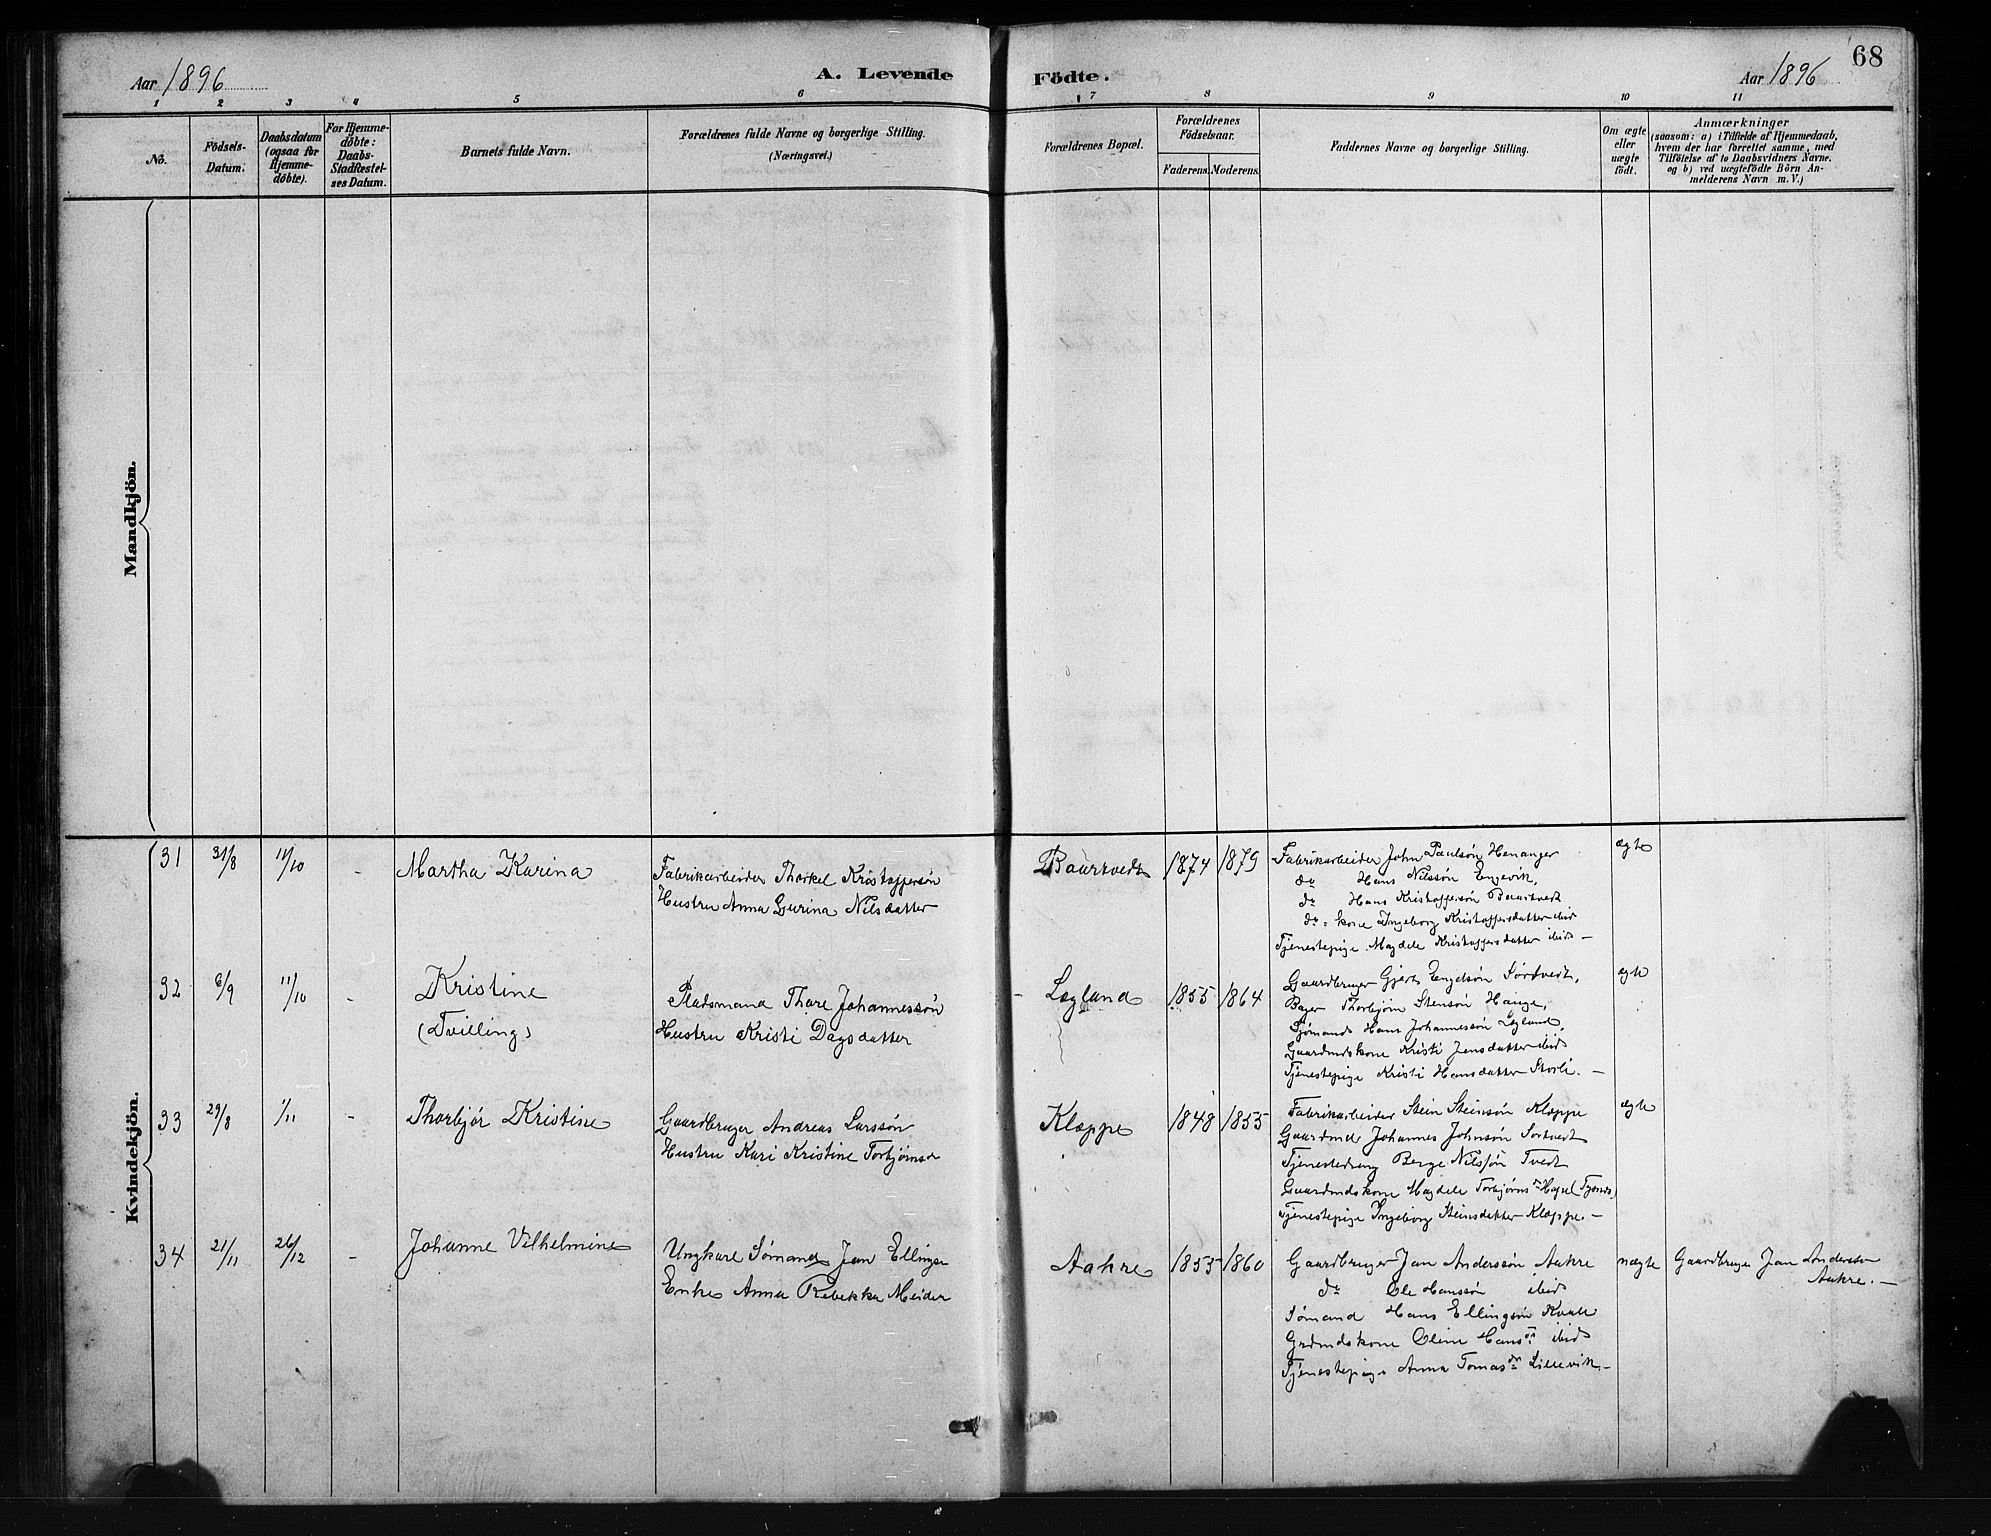 68
Aar 1896
A. Levende Födte.
Aar 1896
1 2 3 4 5 6 7 8 9 10 11
No.
Födsels-Datum.
Daabsdatum (ogsaa for Hjemme-döbte).
For Hjemme-döbte: Daabs-Stadfæstel-ses Datum.
Barnets fulde Navn.
Forældrenes fulde Navne og borgerlige Stilling.
(Næringsvei.)
Forældrenes Bopæl.
Forældrenes Födselsaar.
Faderens. Moderens.
Faddernes Navne og borgerlige Stilling.
Om ægte eller uægte födt.
Anmærkninger
(saasom: a) i Tilfælde af Hjemmedaab,
hvem der har forrettet samme, med
Tilföielse af to Daabsvidners Navne,
og b) ved uægtefödte Börn An-
melderens Navn m. V.)
Mandkjön.
Kvindekjön.
31 31/8 11/10 - Martha Karina
Fabrikarbeider Thorkel Kristoffersøn
Hustru Anna Gurina Nilsdatter
Baurtvedt 1874 1879
Fabrikarbeider John Paulsøn Hananger
do Hans Nilssøn Engevik,
do Hans Kristoffersøn Baurtvedt
do - kone Ingeborg Kristoffersdatter ibid
Tjenestepige Magdele Kristoffersdatter ibid -
ægte
32 6/9 11/10 - Kristine
(Tvilling)
Pladsmand Thore Johannessøn
Hustru Kristi Dagsdatter
Lægland 1855 1864
Gaardbruger Gjert Engelsøn Sørtvedt,
Bager Thorbjørn Stensøn Hauge,
Sjømand Hans Johannessøn Lægland,
Gaardmdskone Kristi Jensdatter ibid
Tjenestepige Kristi Hansdatter Storli. -
ægte
33 29/8 1/11 - Thorbjør Kristine
Gaardbruger Andreas Larssøn
Hustru Kari Kristine Torbjørnsd
Klæppe 1848 1855
Fabrikarbeider Stein Steinsøn Klæppe
Gaardmd Johannes Johnsøn Sørtvedt
Tjenestedreng Berge Nilssøn Tvedt
Gaardmdskone Magdele Torbjørnsdr
Tjenestepige Ingeborg Steinsdatter Klæppe. -
ægte
34 21/11 26/12 - Johanne Vilhelmine
Ungkarl Sømand Jan Ellingsen
Enke Anna Rebekka Meider
Aahre 1855 1860
Gaardbruger Jan Anderssøn Aahre
do Ole Hanssøn ibid
Sømand Hans Ellingsøn Kvale
Grdmdskone Oline Hansdr ibid
Tjenestepige Anna Tomasdr Lillevik. -
uægte
Gaardbruger Jan Anderssøn
Aahre. -